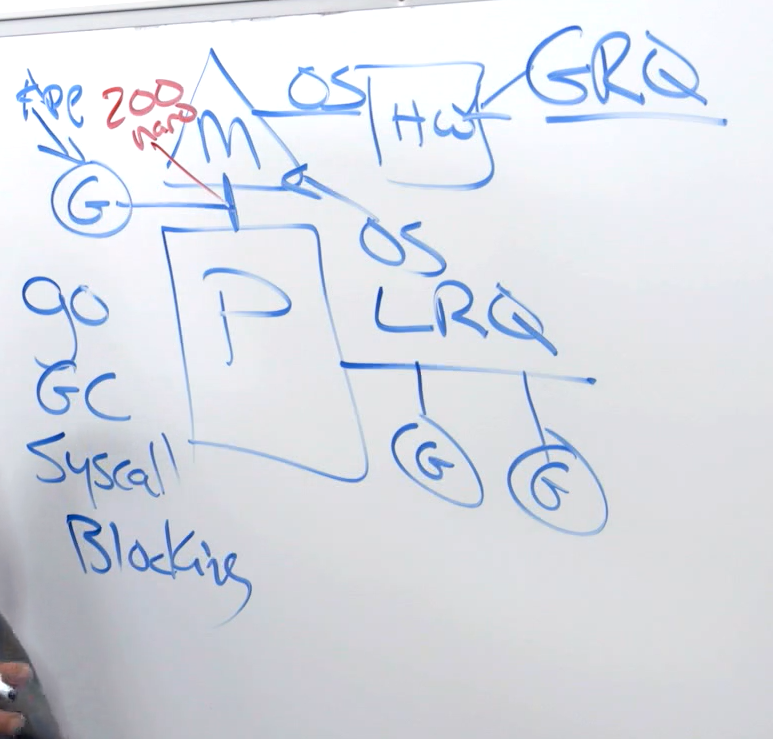 App
200
nano
M
OS
HW
GRQ
G
OS
P
LRQ
G
G
go
GC
Syscall
Blocking